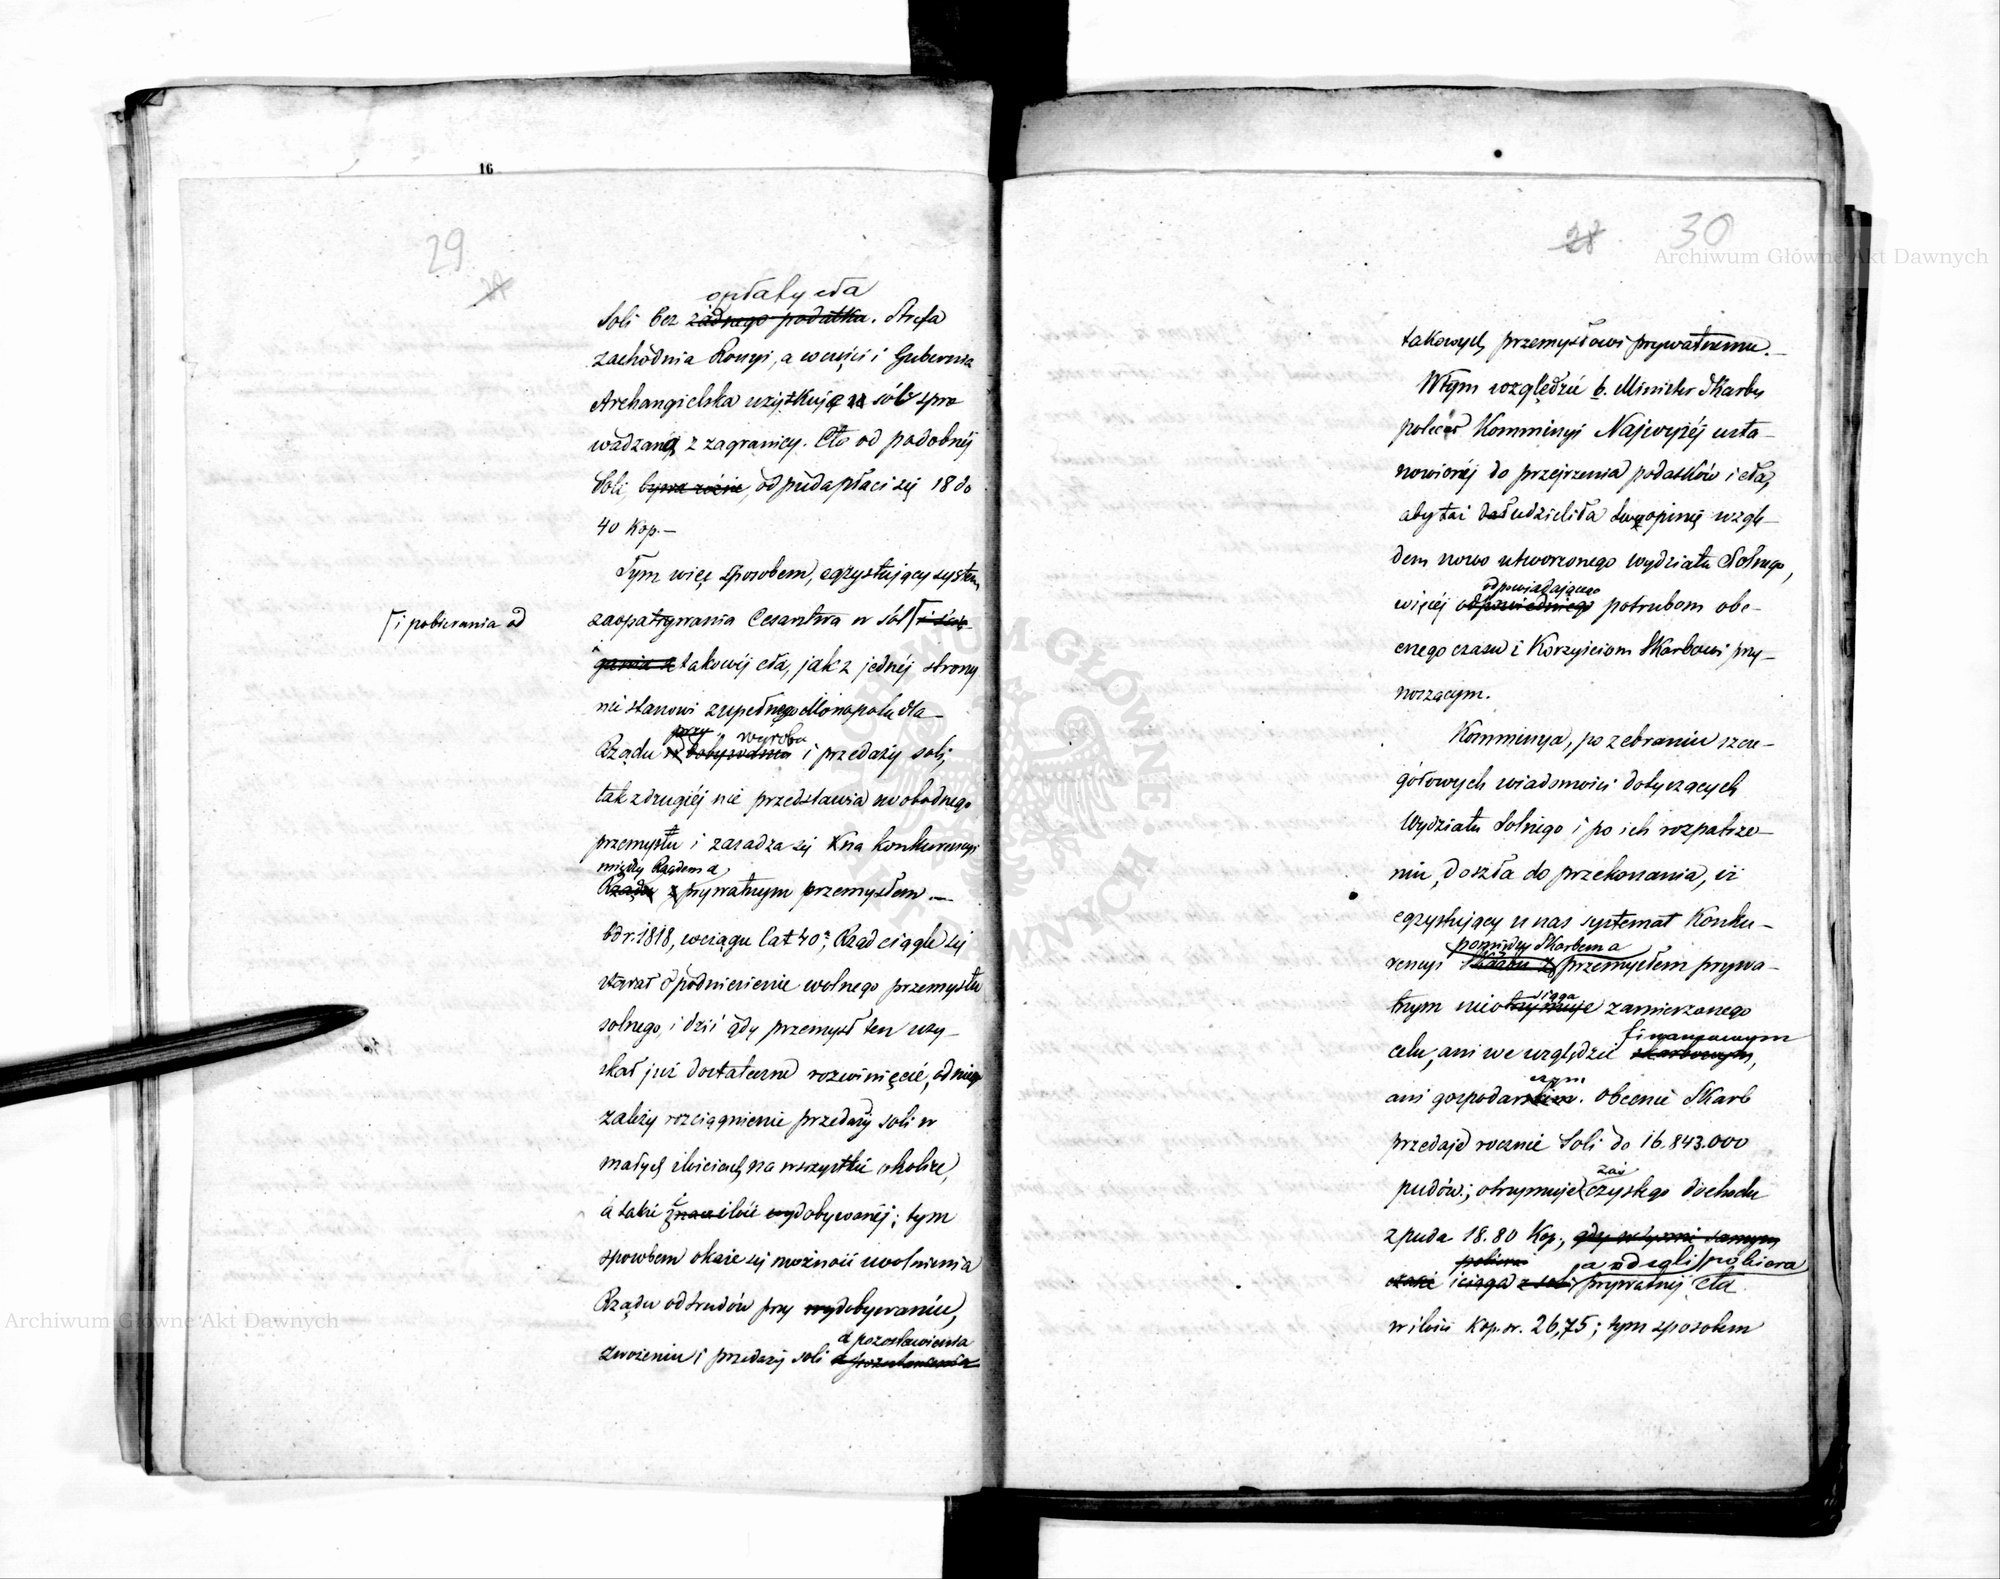 16
29
opłaty cła
Soli bez żadnego podatku. Strefa
zachodnia Rossyi, a w części i Gubernia
Archangielska uzyskuje sól spro
wadzaną z zagranicy. Cło od podobnéj
Soli, bywa różne, od puda płaci się 18 do
40 kop.—
Tym więc sposobem, egzystujący system
zaopatrywania Cesarstwa w sól i ścią-
i pobierania od
gania z takowéj cła, jak z jednéj strony
nie stanowi zupełnego Monopolu dla
przy wyrobie
Rządu w dobywaniu i przedaży soli,
tak z drugiéj nie przedstawia swobodnego
przemysłu i zasadza się na konkurencyi
między Rządem a
Rządu z prywatnym przemysłem.—
Od r. 1818, w ciągu lat 40, Rząd ciągle się
starał o podniesienie wolnego przemysłu
solnego, i dziś gdy przemysł ten uzy-
skał już dostateczne rozwinięcie, od niego
zależy rozciągnienie przedaży soli w
małych ilościach na wszystkie okolice,
a także ilości wydobywanéj; tym
sposobem okaże się możność uwolnienia
Rządu od trudów przy wydobywaniu,
a pozostawienia
zwożeniu i przedaży soli a pozostawienia
28 30
takowych przemysłowi prywatnemu.—
W tym względzie b. Minister Skarbu
polecił Kommissyi Najwyżéj usta-
nowionéj do przejrzenia podatków i cła,
aby taż udzieliła swą opinię wzglę-
dem nowo utworzonego wydziału Solnego,
odpowiadającego
więcéj odpowiedniego potrzebom obe-
cnego czasu i korzyściom Skarbowi przy-
noszącym.
Kommissya, po zebraniu szcze-
gółowych wiadomości dotyczących
Wydziału Solnego i po ich rozpatrze-
niu, doszła do przekonania, iż
egzystujący u nas systemat konku-
pomiędzy Skarbem a
rencyi Skarbu z przemysłem prywa-
siąga
tnym nie otrzymuje zamierzonego
finansowym
celu, ani we względzie skarbowym,
czym
ani gospodarskim. Obecnie Skarb
przedaje rocznie Soli do 16.843.000
zaś
pudów; otrzymuje czystego dochodu
z puda 18.80 Kop., gdy w tymże samym
pobiera a od soli pobiera
czasie ściąga z soli prywatnéj cła
w ilości Kop. sr. 26,75; tym sposobem
Archiwum Główne Akt Dawnych
Archiwum Główne Akt Dawnych
ARCHIWUM GŁÓWNE AKT DAWNYCH